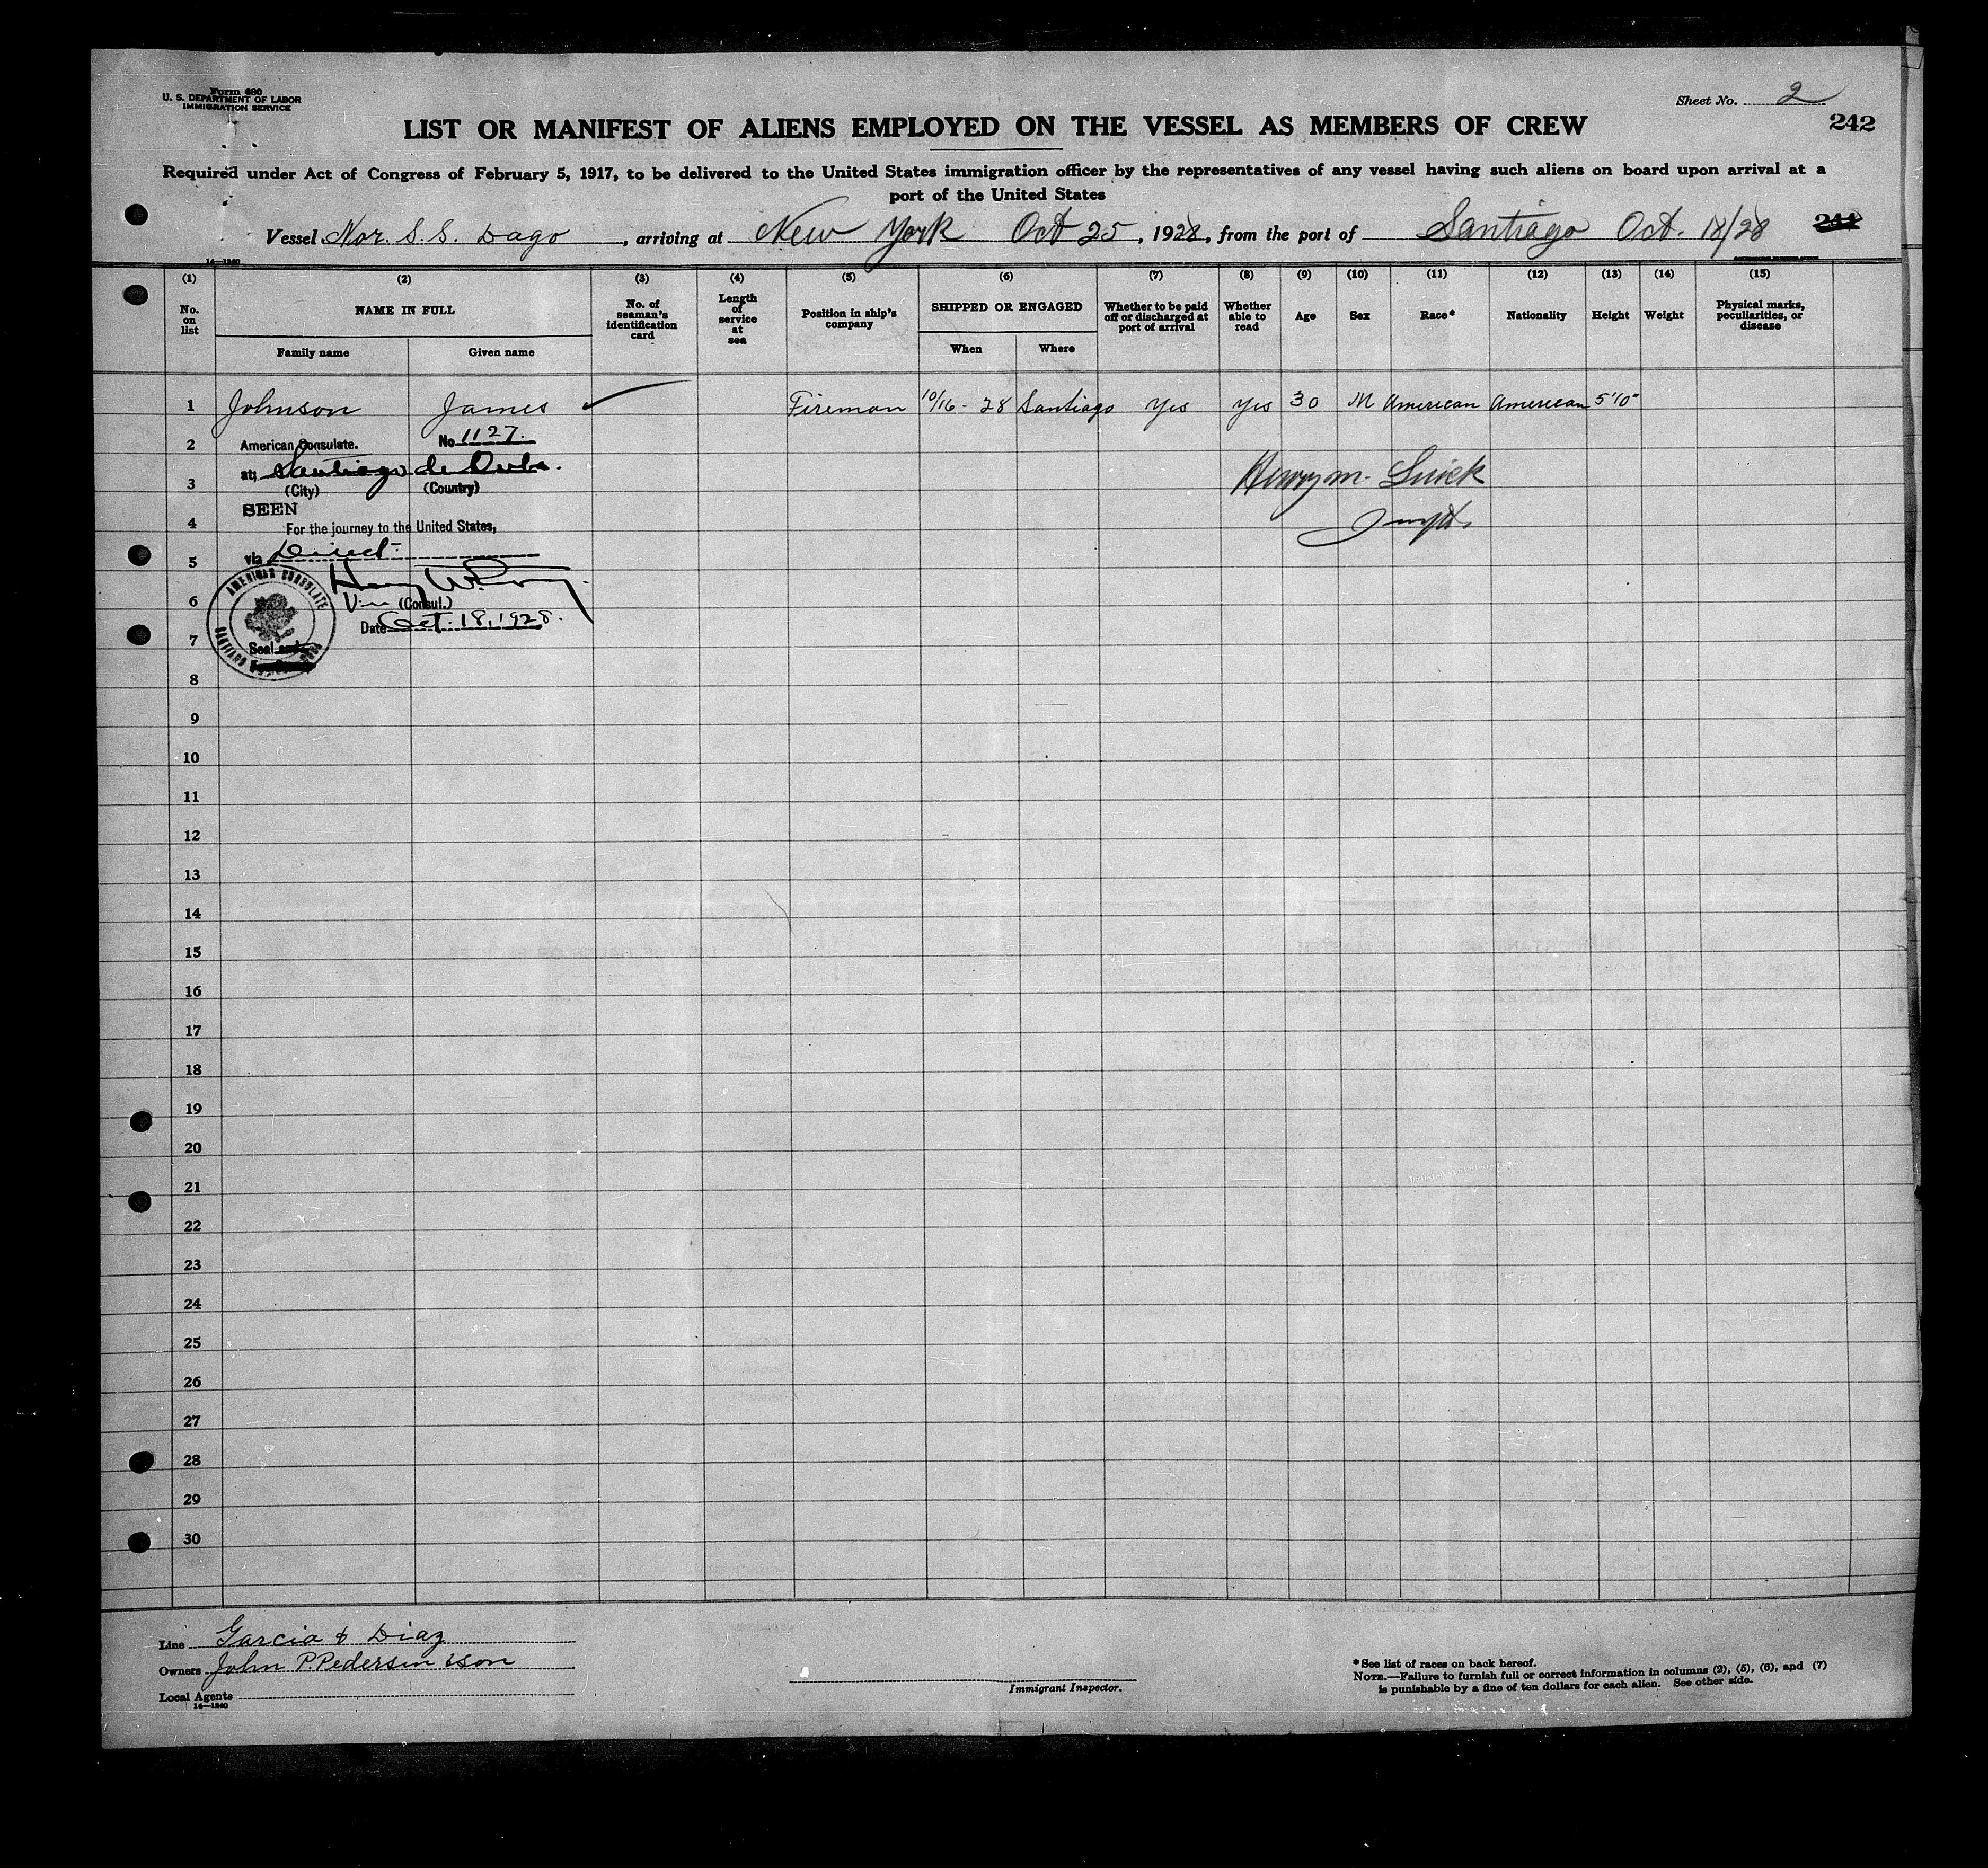 Form 680
U. S. DEPARTMENT OF LABOR
IMMIGRATION SERVICE
Sheet No. 2
LIST OR MANIFEST OF ALIENS EMPLOYED ON THE VESSEL AS MEMBERS OF CREW
242
Required under Act of Congress of February 5, 1917, to be delivered to the United States immigration officer by the representatives of any vessel having such aliens on board upon arrival at a
port of the United States
Vessel Nor. S. S. Dago, arriving at New York Oct 25, 1928, from the port of Santiago Oct. 18/28
14—1240
(1) (2) (3) (4) (5) (6) (7) (8) (9) (10) (11) (12) (13) (14) (15)
No. on list
NAME IN FULL
Family name Given name
No. of seaman's identification card
Length of service at sea
Position in ship's company
SHIPPED OR ENGAGED
When Where
Whether to be paid off or discharged at port of arrival
Whether able to read
Age
Sex
Race*
Nationality
Height
Weight
Physical marks, peculiarities, or disease
1 Johnson James Fireman 10/16-28 Santiago Yes Yes 30 M American American 5'10"
2
American Consulate. No 1127.
at, Santiago de Cuba.
3
(City) (Country)
SEEN
4
For the journey to the United States,
5
via Direct
AMERICAN CONSULATE
6
(Consul.)
Date Oct. 18, 1928.
7
Seal and
8
9
10
11
12
13
14
15
16
17
18
19
20
21
22
23
24
25
26
27
28
29
30
Line Garcia & Diaz
Owners John P. Pedersen & Son
Local Agents
14—1240
Immigrant Inspector.
* See list of races on back hereof.
NOTE.—Failure to furnish full or correct information in columns (2), (5), (6), and (7)
is punishable by a fine of ten dollars for each alien. See other side.